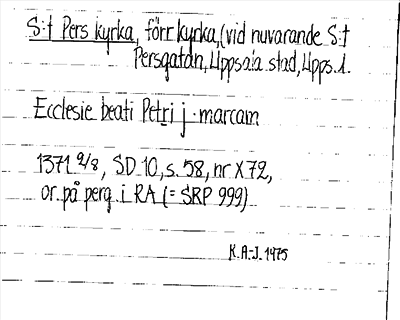 S:t Pers kyrka, förr kyrka, (vid nuvarande S:t
Persgatan, Uppsala stad, Upps. l.
Ecclesie beati Petri j. marcam
1371 9/8, SD 10, s. 58, nr X72,
or. på perg. i RA (= SRP 999)
K.A.-J. 1975